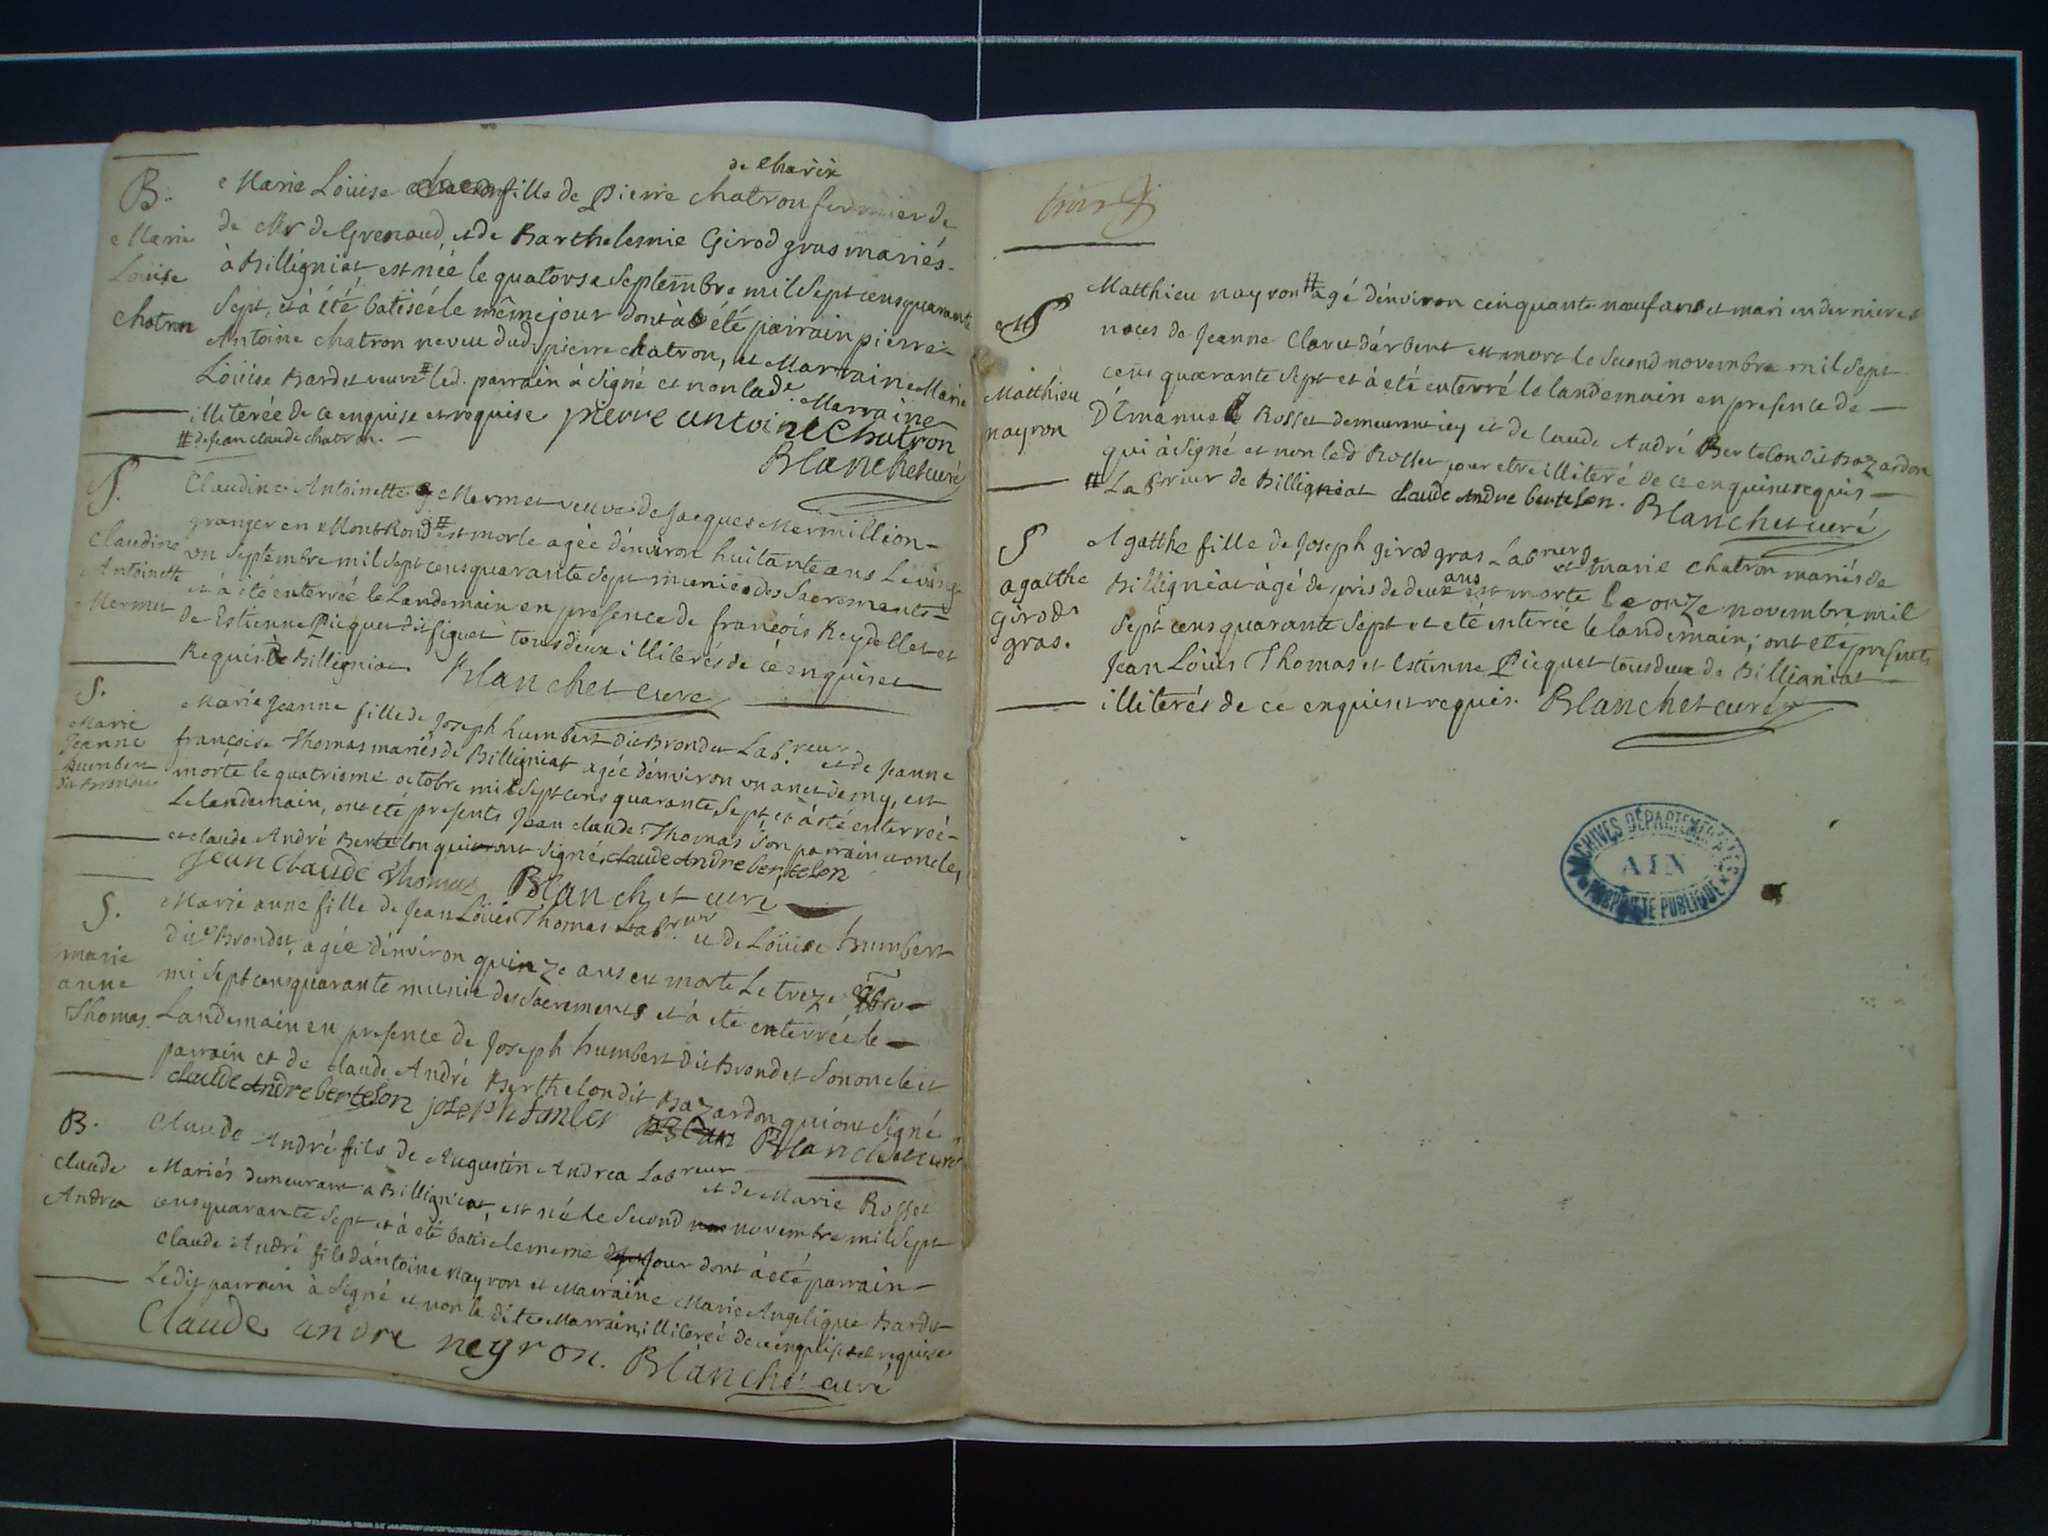 de Charix
B. Marie Loüise fille de Pierre Chatron fermier de
Marie de Mr de Grenaud, et de Barthelemie Girod gras mariés
Loüise à Billigniat, est née le quatorse Septembre mil Sept cens quarante
Chatron Sept, et à été batisée le même jour dont à été parrain pierre
Antoine Chatron neveu dud. pierre chatron, et Marraine Marie
Loüise Bardet veuve # led. parrain à signé et non lad.e Marraine
illiterée de ce enquise et requise pierre antoine Chatron
# de Jean Claude Chatron. Blanchet curé
S. Claudine Antoinette Mermet veuve de Jacques Mermillion
granger en Montrond # est morte agée d'environ huitante ans le vingt
Claudine un Septembre mil Sept cens quarante Sept munie des Sacremants
Antoinette et à été enterrée le Landemain en presence de françois Reydellet et
Mermet de Estienne Picquet dit figuet tous deux illiterés de ce enquis et
Requis # de Billigniat Blanchet curé
S. Marie Jeanne fille de Joseph humbert dit Brondet Lab.reur et de Jeanne
Marie françoise Thomas mariés de Billigniat agée d'environ un an et demy, est
Jeanne morte le quatrieme octobre mil Sept cens quarante Sept, et à été enterrée
humbert Le landemain, ont été presents Jean claude Thomas son parrain et oncle,
dit Brondet et claude André Bertelon qui ont signé, claude Andre bertelon
Jean Claude Thomas Blanchet curé
S. Marie anne fille de Jean Loüis Thomas Lab.reur et de Loüise humbert
dite Brondet, agée d'environ quinze ans est morte le treze
marie mil Sept cens quarante munie des Sacrements et à eté enterrée le
anne Landemain en presence de Joseph humbert dit Brondet son oncle et
Thomas. parrain et de claude André Berthelon dit Bazardon qui ont signé
claude Andre bertelon Blanchet curé
B. Claude André fils de Augustin Andrea Lab.reur et de Marie Rosset
claude Mariés demeurant a Billigniat, est né le Second novembre mil Sept
Andrea cens quarante Sept et à été batisé le meme jour dont à été parrain
claude André fils d'antoine Nayron et Mairaine Marie Angelique Bardet
Ledit parrain à Signé et non la dite Marraine illiterée de ce enquise et requise
Claude andre neyron. Blanchet curé
trois
S Matthieu nayron # agé d'environ cinquante neuf ans et mari en dernieres
noces de Jeanne Claret d'arbent est mort le Second novembre mil Sept
Matthieu cens quarante Sept et à eté enterré le landemain en presence de
nayron D'Emanuel Rosset demeurant icy et de Claude André Bertelon dit Bazardon
qui à Signé et non led Rosset pour etre illiteré de ce enquis et requis
# Lab.reur de Billigniat claude Andre bertelon. Blanchet curé
S Agatthe fille de Joseph girod gras Lab.reur et de marie chatron mariés de
agatthe Billigniat àgé de pres de deux ans est morte le onze novembre mil
girod Sept cens quarante Sept et eté enterée le landemain; ont eté presents
gras. Jean Loüis Thomas et Estienne Picquet tous deux de Billigniat
illiterés de ce enquis et requis. Blanchet curé
ARCHIVES DÉPARTEMENTALES
AIN
PROPRIÉTÉ PUBLIQUE